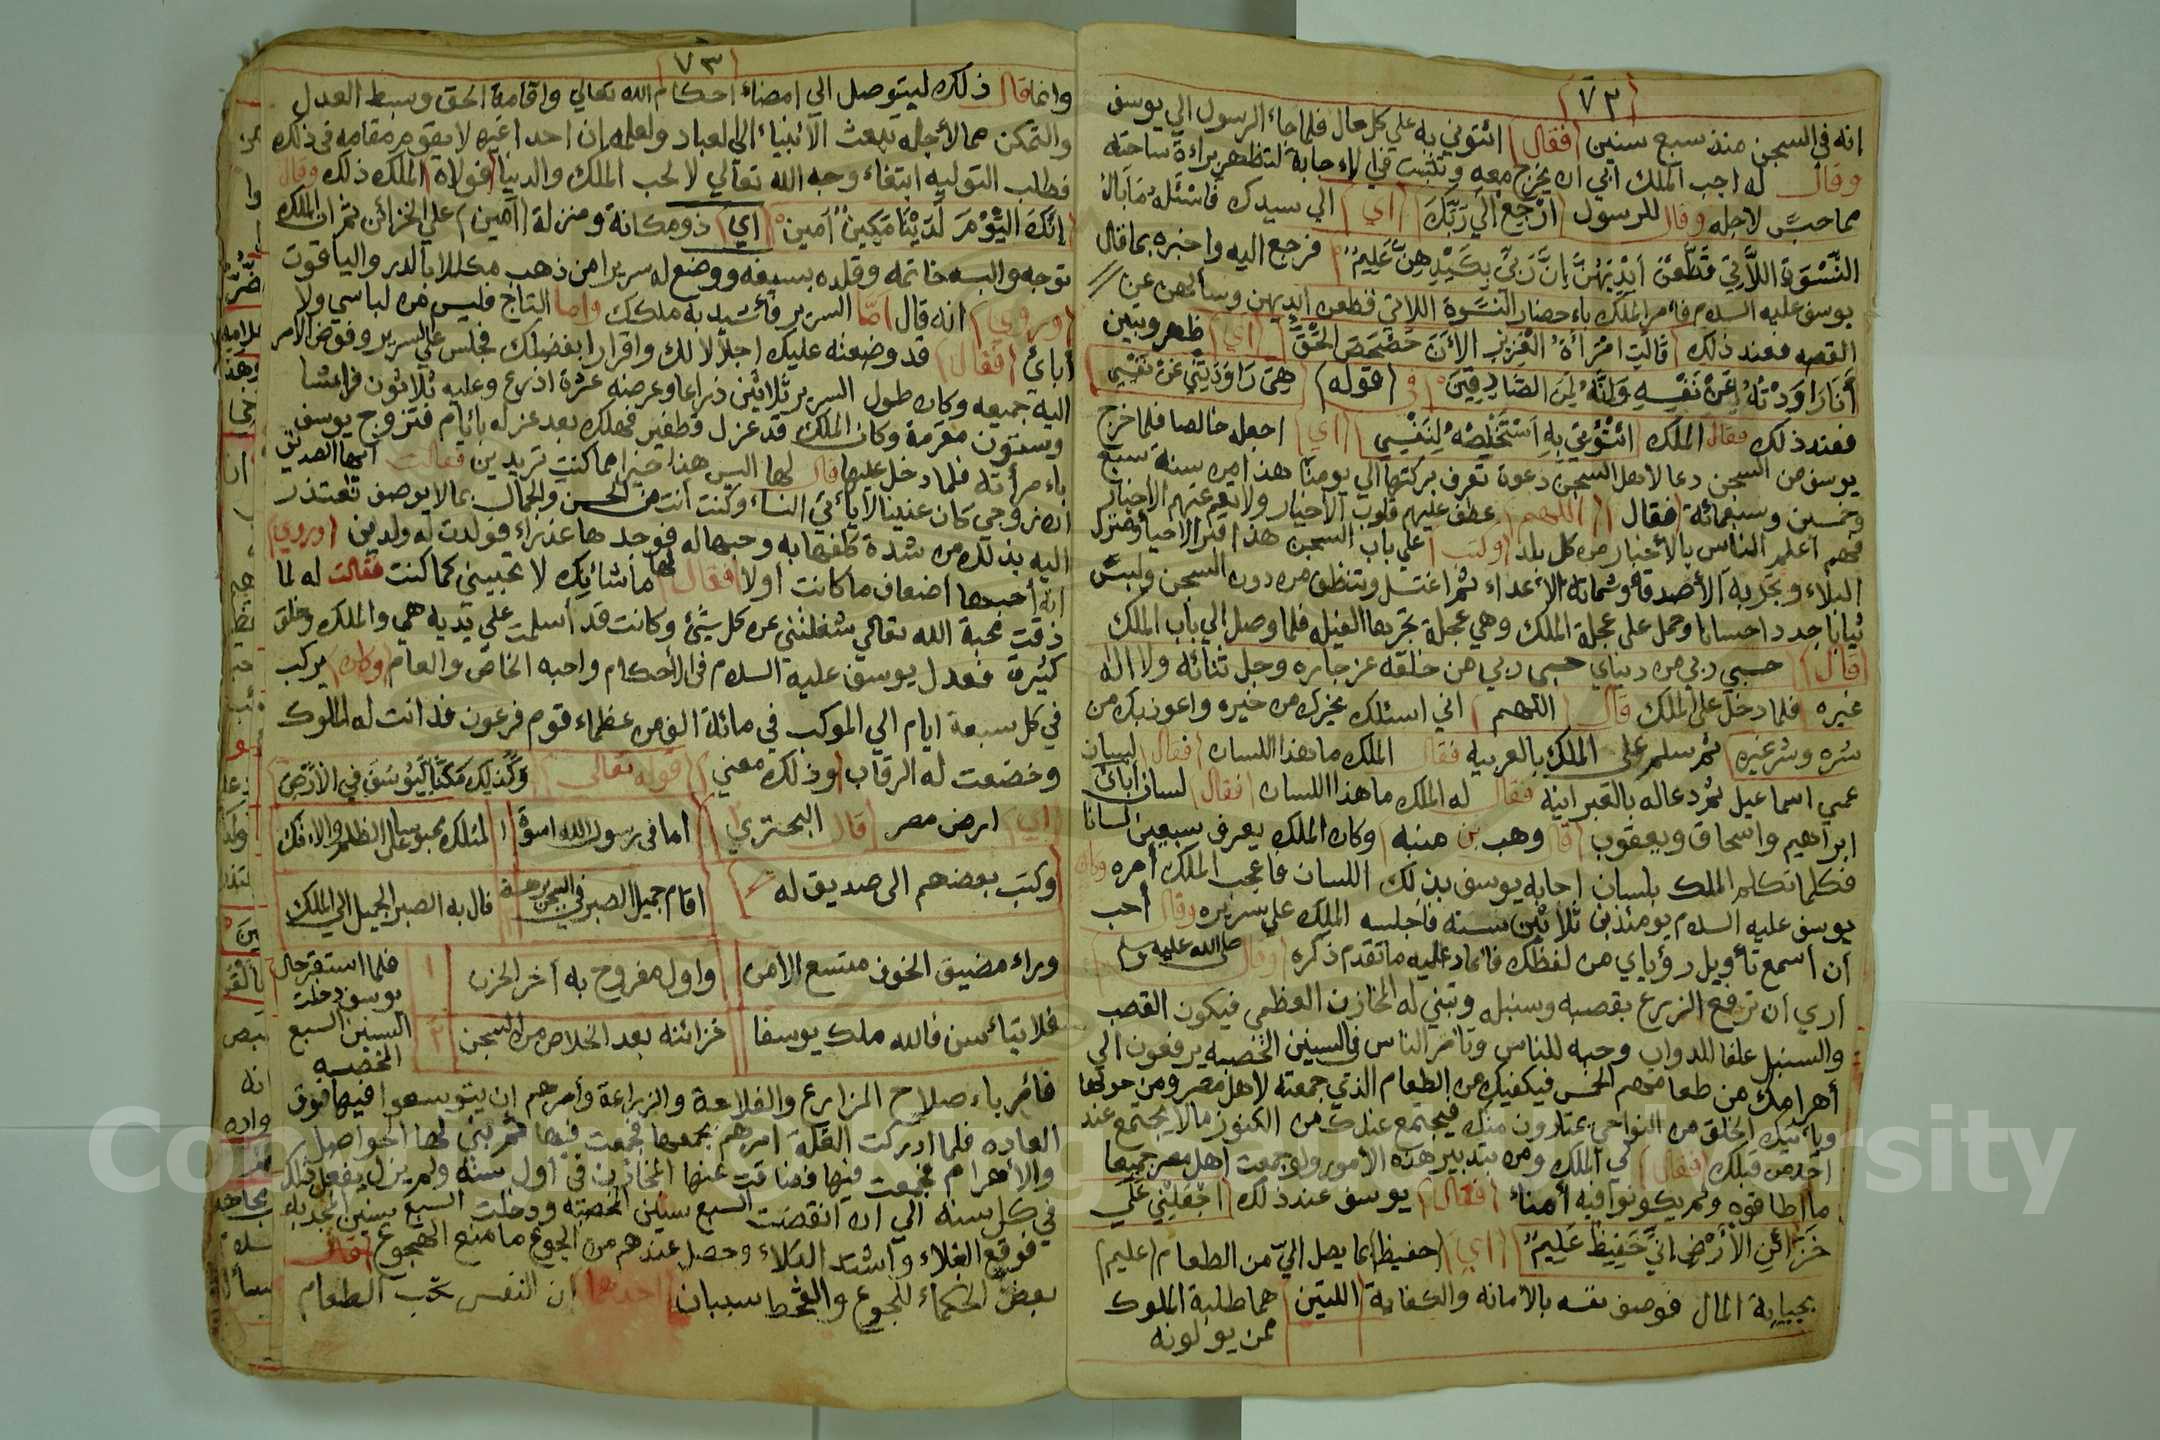 ٧٢
انه في السجن منذ سبع سنين فقال ائتوني به علي كل حال فلما جاء الرسول الي يوسف
وقال له اجب الملك ابي ان يخرج معه وتثبت في الاءجابة لتظهر براءة ساحته
مما حبس لاجله وقال للرسول ارْجِعْ اِلَي رَبِّكَ اي الي سيدك فَاسْئَلْهُ مَا بَالُ
النِّسْوَةِ اللَّاتِي قَطَّعْنَ اَيْدِيَهُنَّ اِنَّ رَبِّي بِكَيْدِهِنَّ عَلِيمٌ فرجع اليه واخبره بما قال
يوسف عليه السلام فامر الملك باءحضار النسوة اللاتي قطعن ايديهن وسألهن عن
القصه فعند ذلك قَالَتِ امْرَأَةُ الْعَزِيزِ الاَنَ حَصْحَصَ الْحَقُّ اي ظهر وتبين
أَنَا رَاوَدْتُهُ عَنْ نَفْسِهِ وَاِنَّهُ لَمِنَ الصَّادِقِينَ في قوله هِيَ رَاوَدَتْنِي عَنْ نَفْسِي
فعند ذلك فقال الملك ائْتُونِي بِهِ اَسْتَخْلِصْهُ لِنَفْسِي اي اجعله خالصا فلما خرج
يوسف من السجن دعا لاهل السجن دعوة تعرف بركتها الي يومنا هذا من سنة سبع
وخمسين وسبعمائة فقال اللهم عطف عليهم قلوب الأخيار ولا تعم عنهم الاخبار
فهم اعلم الناس بالأخبار من كل بلد وكتب علي باب السجن هذا قبر الاحياء ومنزل
البلاء وتجربة الأصدقاء وشماتة الأعداء ثم اغتسل وتنظف من درن السجن ولبس
ثيابا جددا حسانا وحمل على عجلة الملك وهي عجلة تجرها الفيلة فلما وصل الي باب الملك
قال حسبي ربي من دنياي حسبي ربي من خلقه عز جاره وجل ثنائه ولا اله
غيره فلما دخل على الملك قال اللهم اني اسئلك بخيرك من خيره واعوذ بك من
شره وشر غيره ثم سلم على الملك بالعربيه فقال الملك ما هذا اللسان فقال لسان
عمي اسماعيل ثم دعا له بالعبرانيه فقال له الملك ما هذا اللسان فقال لسان أبائي
ابراهيم واسحاق ويعقوب قال وهب بن منبه وكان الملك يعرف سبعين لسانا
فكلما تكلم الملك بلسان اجابه يوسف بذلك اللسان فاعجب الملك أمره وكان
يوسف عليه السلام يومئذ بن ثلاثين سنة فاجلسه الملك علي سريره وقال أحب
ان أسمع تأويل رؤياي من لفظك فاعاد عليه ما تقدم ذكره وقال صلى الله عليه وسلم
اري ان ترفع الزرع بقصبه وسنبله وتبني له المخازن العظمي فيكون القصب
والسنبل علفا للدواب وحبه للناس وتامر الناس في السنين الخصبه يرفعون الي
أهرامك من طعامهم الخمس فيكفيك من الطعام الذي جمعته لاهل مصر ومن حولها
ويأتيك الخلق من النواحي يمتارون منك فيجتمع عندك من الكنوز مالا يجتمع عند
احد من قبلك فقال لي الملك ومن بتدبير هذه الأمور ولو جمعت أهل مصر جميعا
ما اطاقوه ولم يكونوا فيه أمناء فقال يوسف عند ذلك اجْعَلْنِي عَلَي
خَزَائِنِ الْأَرْضِ اِنِّي حَفِيظٌ عَلِيمٌ اي (حفيظ) بما يصل اليّ من الطعام (عليم)
بجباية المال فوصف نفسه بالأمانه والكفاية اللتين هما طلبة الملوك
ممن يولونه
٧٣
وانما قال ذلك ليتوصل الي امضاء احكام الله تعالي واقامة الحق وبسط العدل
والتمكن مما لأجله تبعث الأنبياء الي العباد ولعلمه ان احدا غيره لا يقوم مقامه في ذلك
فطلب التوليه ابتغاء وجه الله تعالي لا لحب الملك والدنيا فولاه الملك ذلك وقال
اِنَّكَ الْيَوْمَ لَدَيْنَا مَكِينٌ اَمِينٌ اي ذو مكانة ومنزلة (امين) علي الخزائن ثم ان الملك
توجه والبسه خاتمه وقلده بسيفه ووضع له سريرا من ذهب مكللا بالدر والياقوت
وروي انه قال امّا السرير فأشيد به ملكك واما التاج فليس من لباسي ولا
أبائي فقال قد وضعته عليك اجلالا لك واقرارا بفضلك فجلس علي السرير وفوض الامر
اليه جميعه وكان طول السرير ثلاثين ذراعا وعرضه عشرة اذرع وعليه ثلاثون فراشا
وستون مقرمة وكان الملك قد عزل قطفير فهلك بعد عزله بأيام فتزوج يوسف
باءمرأته فلما دخل عليها قال لها اليس هذا خيرا مما كنت تريدين فقالت ايها الصديق
ان زوجي كان عنينا لا يأتي النساء وكنت انت من الحسن والجمال بما لا يوصف تعتذر
اليه بذلك من شدة كلفها به وحبها له فوجدها عذراء فولدت له ولدين وروي
انه أحبها اضعاف ما كانت اولا فقال لها ما شائنك لا تحبيني كما كنت فقالت له لما
ذقت محبة الله تعالي شغلتني عن كل شئ وكانت قد أسلمت علي يديه هي والملك وخلق
كثيرة فعدل يوسف عليه السلام في الأحكام واحبه الخاص والعام وكان يركب
في كل سبعة ايام الي الموكب في مائة الف من عظماء قوم فرعون فدانت له الملوك
وخضعت له الرقاب وذلك معني قوله تعالى وَكَذَلِكَ مَكَّنَّا لِيُوسُفَ فِي الْأَرْضِ
اي ارض مصر قال البحتري اما في رسول الله اسوة لمثلك محبوسا على الظلم والافك
وكتب بعضهم الى صديق له اقام جميل الصبر في السجن برهة فال به الصبر الجميل الي الملك
وراء مضيق الخوف متسع الامن واول مفروح به آخر الحزن فلما استقر حال يوسف دخلت
فلا تيائسن فالله ملك يوسفا خزائنه بعد الخلاص من السجن السنين السبع المخصبه
فأمر باءصلاح المزارع والفلاحة والزراعة وأمرهم ان يتوسعوا فيها فوق
العاده فلما ادركت الغلة امرهم بجمعها فجمعت فيها ثم بني لها الحواصل
والاهرام فجمعت فيها فضاقت عنها المخازن في أول سنة ولم يزل يفعل ذلك
في كل سنه الي ان انقضت السبع سنين المخصبه ودخلت السبع سنين المجدبة
فوقع الغلاء واشتد البلاء وحصل عندهم من الجوع ما منع الهجوع فقال
بعض الحكماء للجوع والقحط سببان احدهما ان النفس تحب الطعام
Copyright © King University